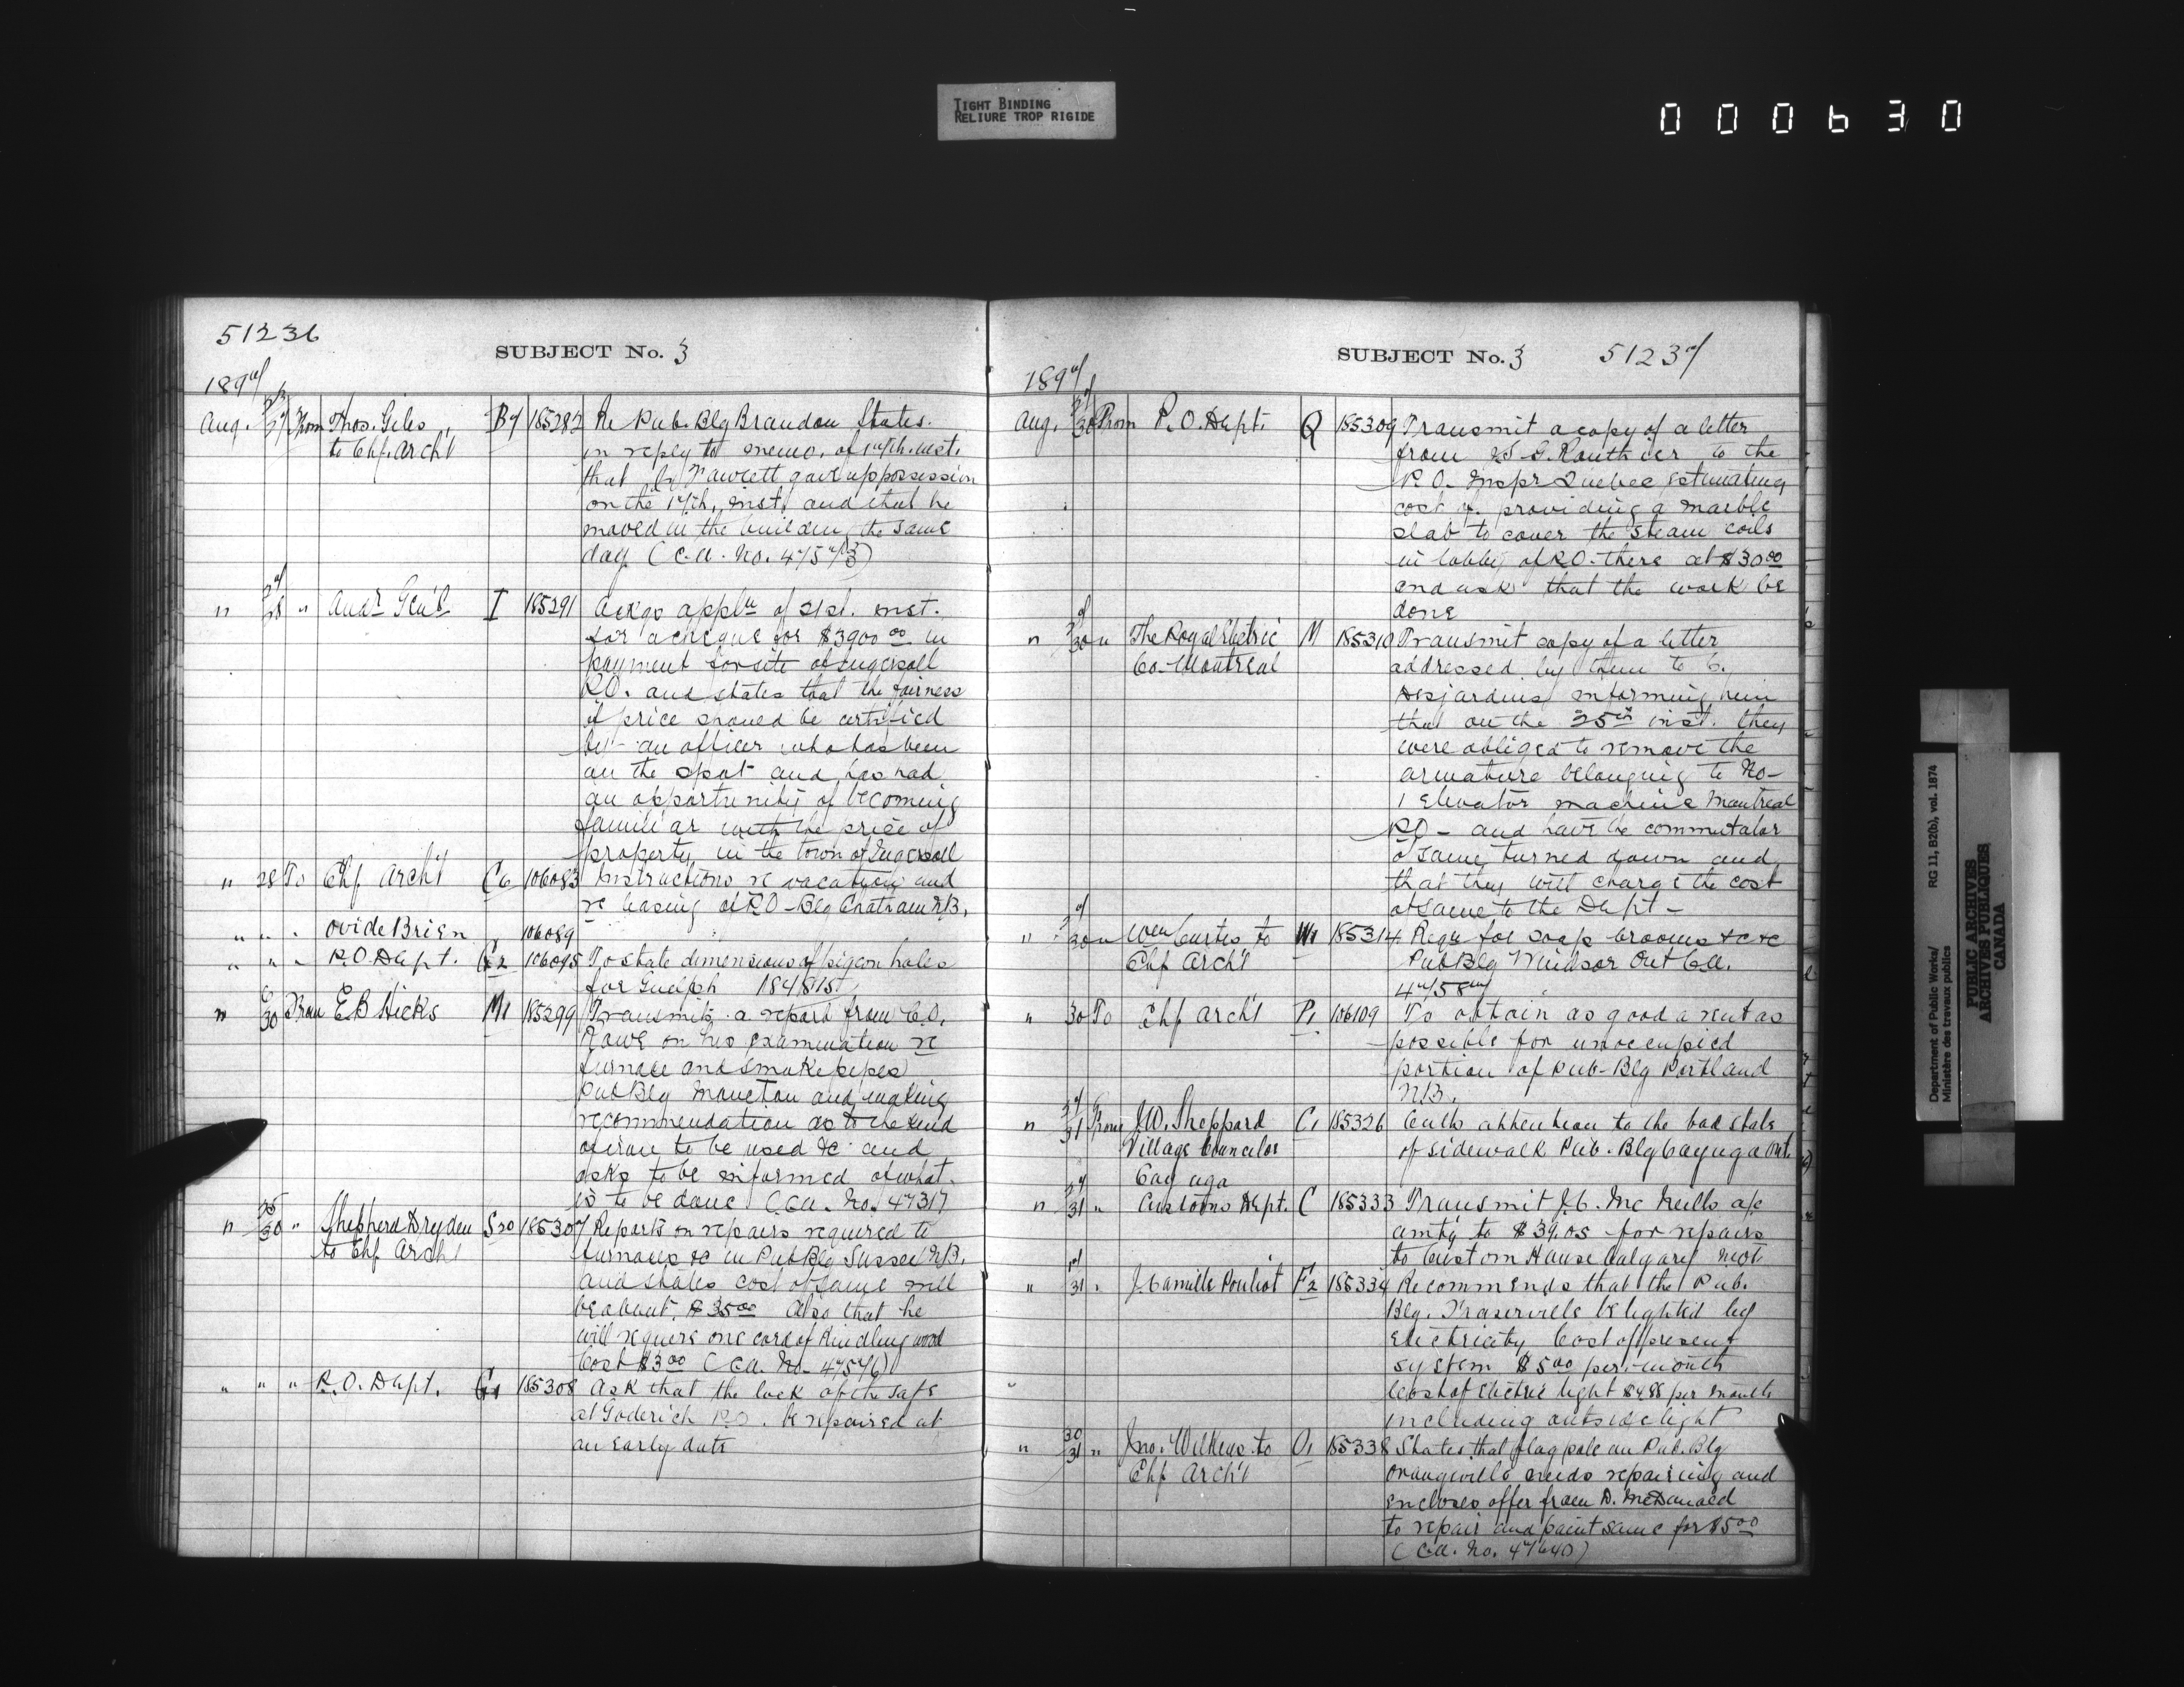 TIGHT BINDING
RELIURE TROP RIGIDE
000630
51236
SUBJECT No. 3
1897
Aug. 27 From Thos. Giles B7 185282 Re Pub. Blg Brandon States.
to Chf. Arch't in reply to memo. of 17th. inst.
that Fawcett gave up possession
on the 17th, inst, and that he
moved in the building the same
day (C.A. No. 47573)
" 27/28 " Audr Gen'l I 185291 Ackgs applu of 21st. inst.
for a cheque for $3900 00 in
payment for site of Ingersoll
P.O. and states that the fairness
of price should be certified
by an officer who has been
on the spot and has had
an opportunity of becoming
familiar with the price of
property in the town of Ingersoll
" 28 To Chf Arch't C6 106083 Instructions re vacation and
re leasing of P.O-Blg Chatham N.B.
" " " Ovide Brien 106089
" " " P.O. Dept. G2 106095 To state dimensions of pigeon holes
for Guelph 184815
" 30 From E B Hicks M1 185299 Transmits a report from C.O.
Rowe on his examination re
furnace and smoke pipes
Pub Blg Moncton and making
recommendation as to the kind
of iron to be used &c and
asks to be informed of what
is to be done (C.A. No. 47317
" 25/30 " Shepherd Dryden S20 185307 Reports on repairs required to
to Chf Arch't furnaces &c in Pub Blg Sussex N.B.
and states cost of same will
be about $35 00 also that he
will require one cord of kindling wood
Cost $3 00 (C.A. No. 47576)
" " " P.O. Dept. G1 185308 Ask that the lock of the safe
at Goderich P.O. be repaired at
an early date
SUBJECT No. 3 51237
1897
Aug. 30 From P.O. Dept. Q 185309 Transmit a copy of a letter
from Routhier to the
P.O. Inspr Quebec estimating
cost of providing a marble
slab to cover the steam coils
in lobby of P.O. there at $30 00
and ask that the work be
done
" 30 " The Royal Electric M 185310 Transmit copy of a letter
Co-Montreal addressed by them to C.
Desjardins informing him
that on the 25th inst. they
were obliged to remove the
armature belonging to No-
1 Elevator machine Montreal
P.O- and have the commutator
of same turned down and
that they will charge the cost
of same to the Dept-
" 30 " Wm Curtis to W1 185314 Requ for soap brooms &c &c
Chf Arch't Pub Blg Windsor Ont C.A.
" 30 To Chf Arch't P1 106109 To obtain as good a rent as
possible for unoccupied
portion of Pub-Blg Portland
N.B.
" 27/31 From J.W. Sheppard C1 185326 Calls attention to the bad state
Village Councilor of sidewalk Pub. Blg Cayuga Ont.
Cayuga
" 27/31 " Customs Dept. C 185333 Transmit J.C. McNeills a/c
amtg to $39.05 for repairs
to Custom House Calgary
" 31 " J. Camille Pouliot F2 185334 Recommends that the Pub.
Blg. Fraserville be lighted by
Electricity Cost of present
system $5 00 per. month
Cost of Electric light $4.88 per month
including outside light
" 30/31 " Jno. Wilkens to O1 185338 States that flag pole on Pub. Blg
Chf Arch't Orangeville needs repairing and
encloses offer from D. McDonald
to repair and paint same for $5 00
(C.A. No. 47640)
Department of Public Works/ RG 11, B2(b), vol. 1874
Ministère des travaux publics
PUBLIC ARCHIVES
ARCHIVES PUBLIQUES
CANADA